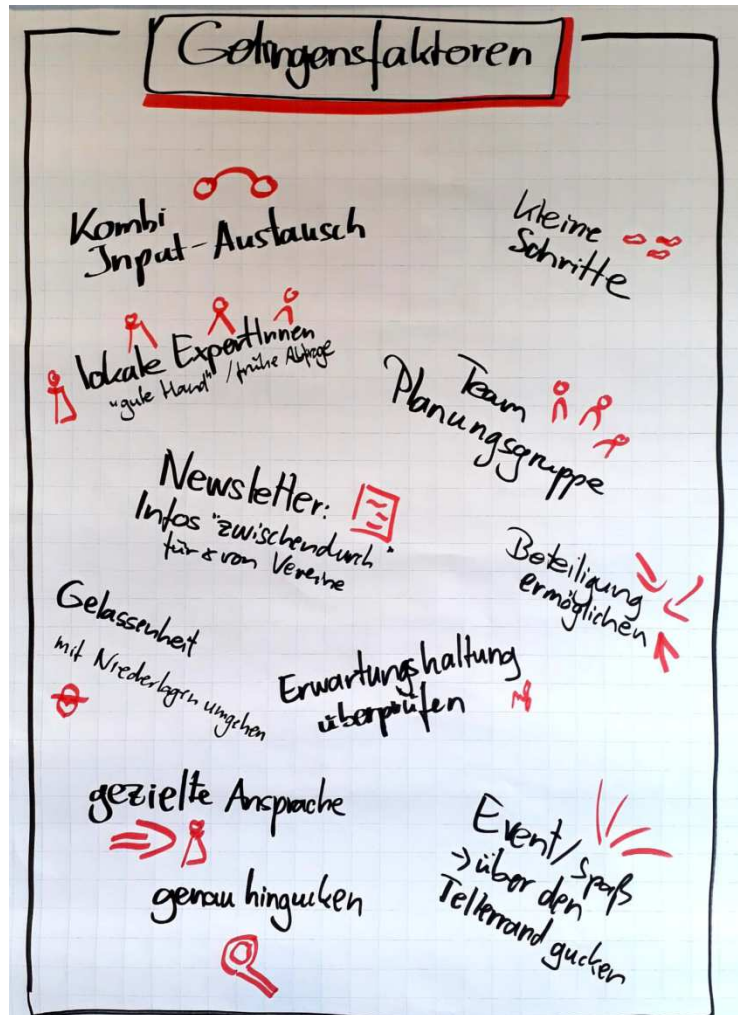 Gelingensfaktoren
Kombi
Input-Austausch
kleine
Schritte
lokale ExpertInnen
"gute Hand" / frühe Abfrage
Team
Planungsgruppe
Newsletter:
Infos "zwischendurch"
für & von Vereine
Beteiligung
ermöglichen
Gelassenheit
mit Niederlagen umgehen
Erwartungshaltung
überprüfen
gezielte Ansprache
genau hingucken
Event/Spaß
→über den
Tellerrand gucken